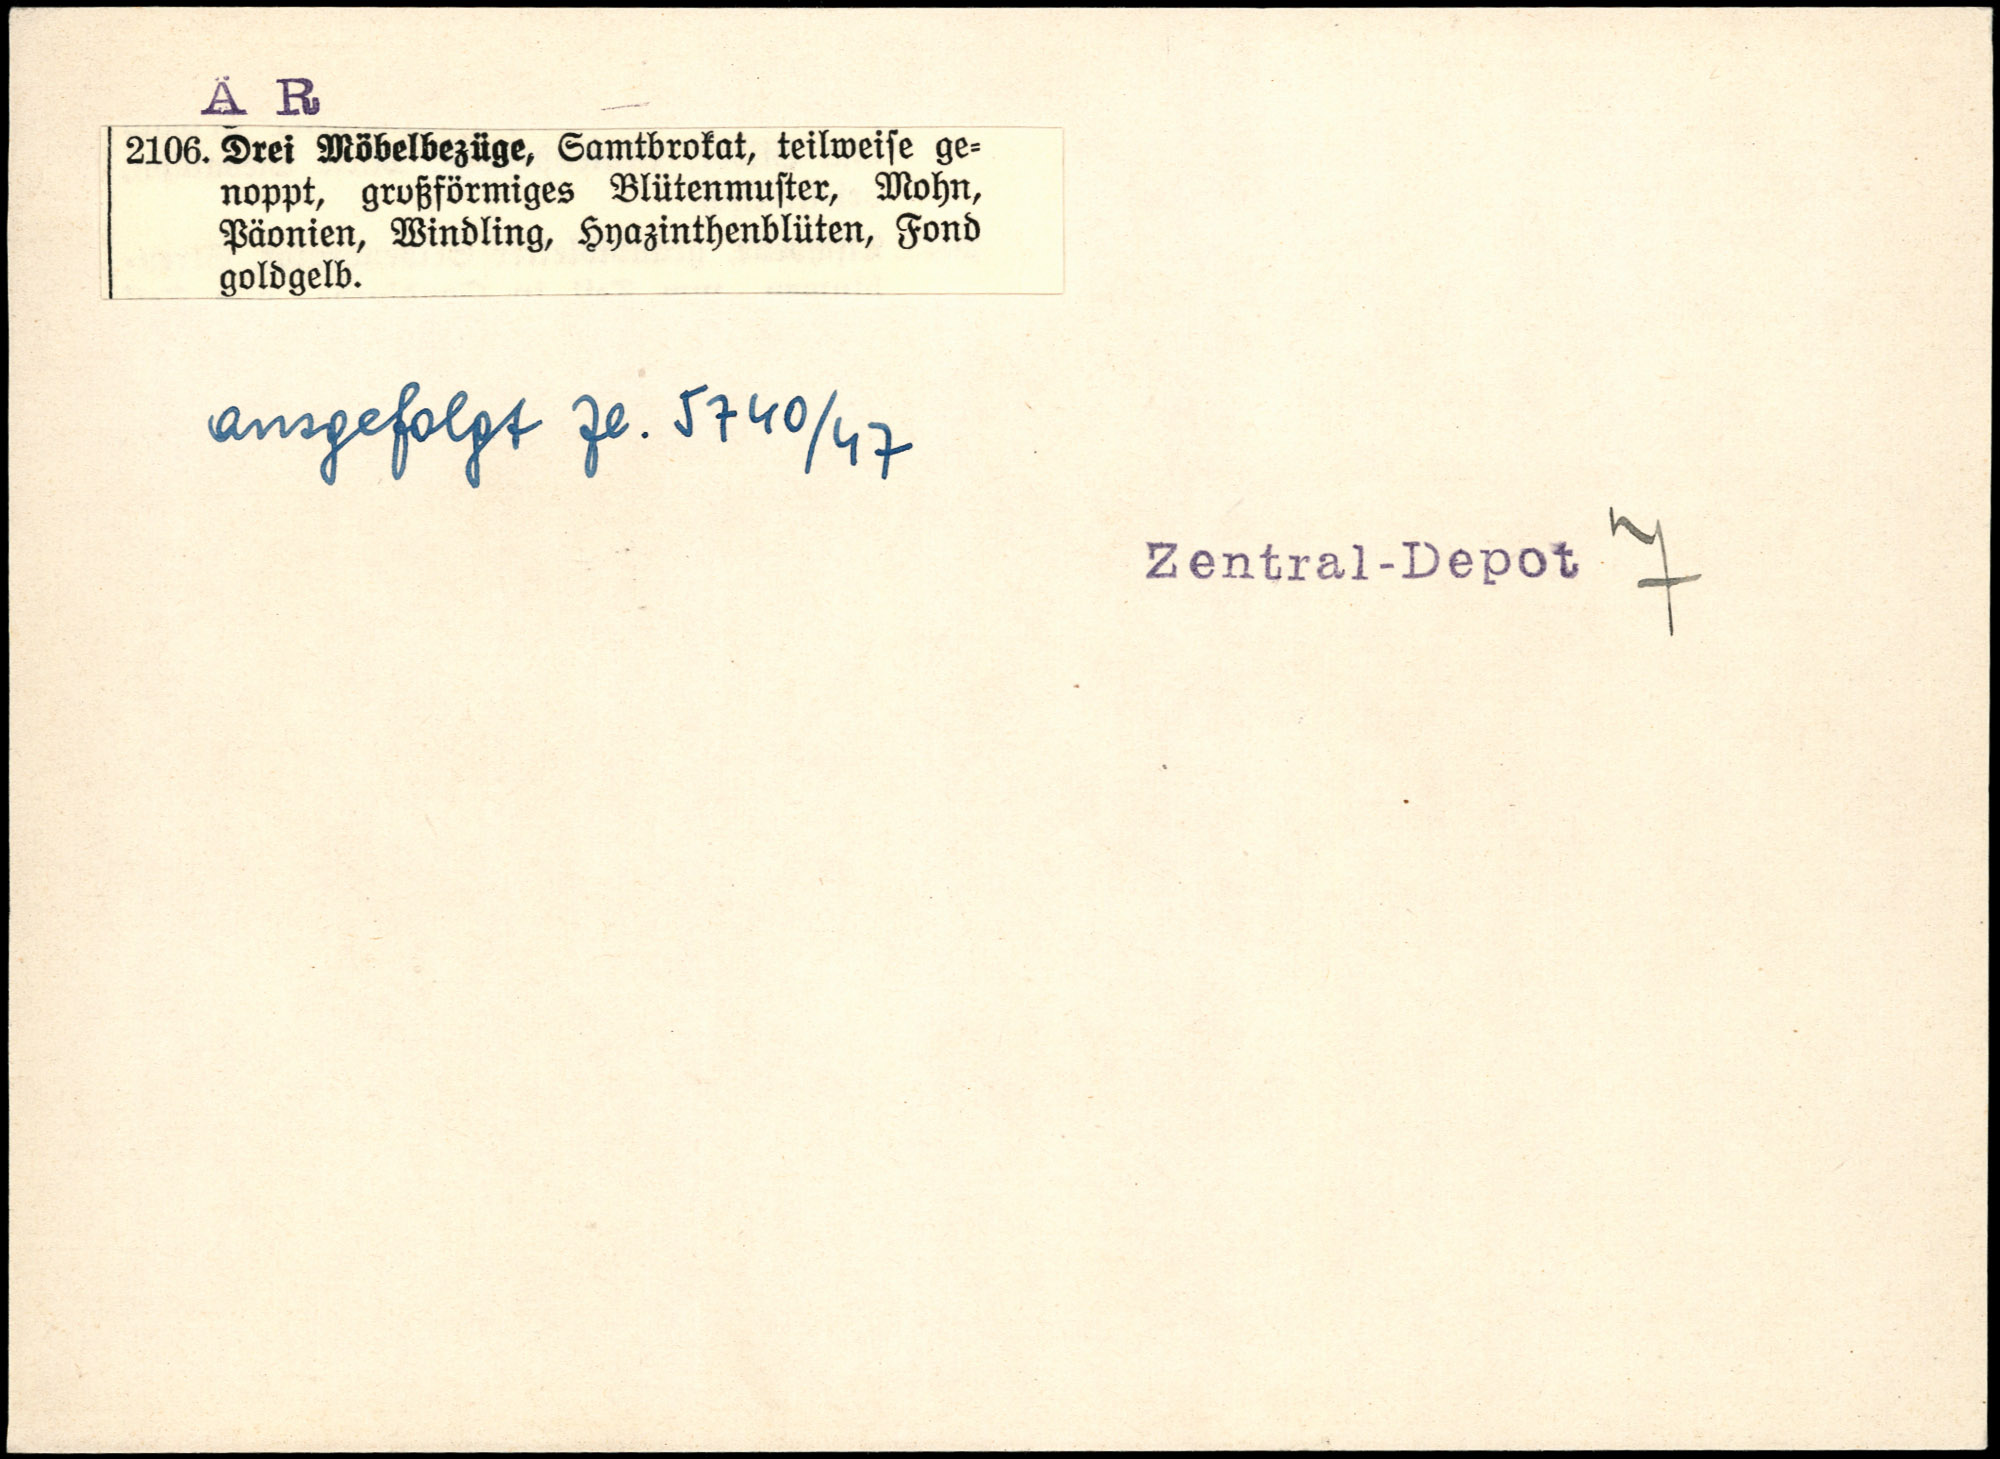 Ä R
2106. Drei Möbelbezüge, Samtbrokat, teilweise ge-
noppt, großförmiges Blütenmuster, Mohn,
Päonien, Windling, Hyazinthenblüten, Fond
goldgelb.
ausgefolgt Zl. 5740/47
Zentral-Depot 7